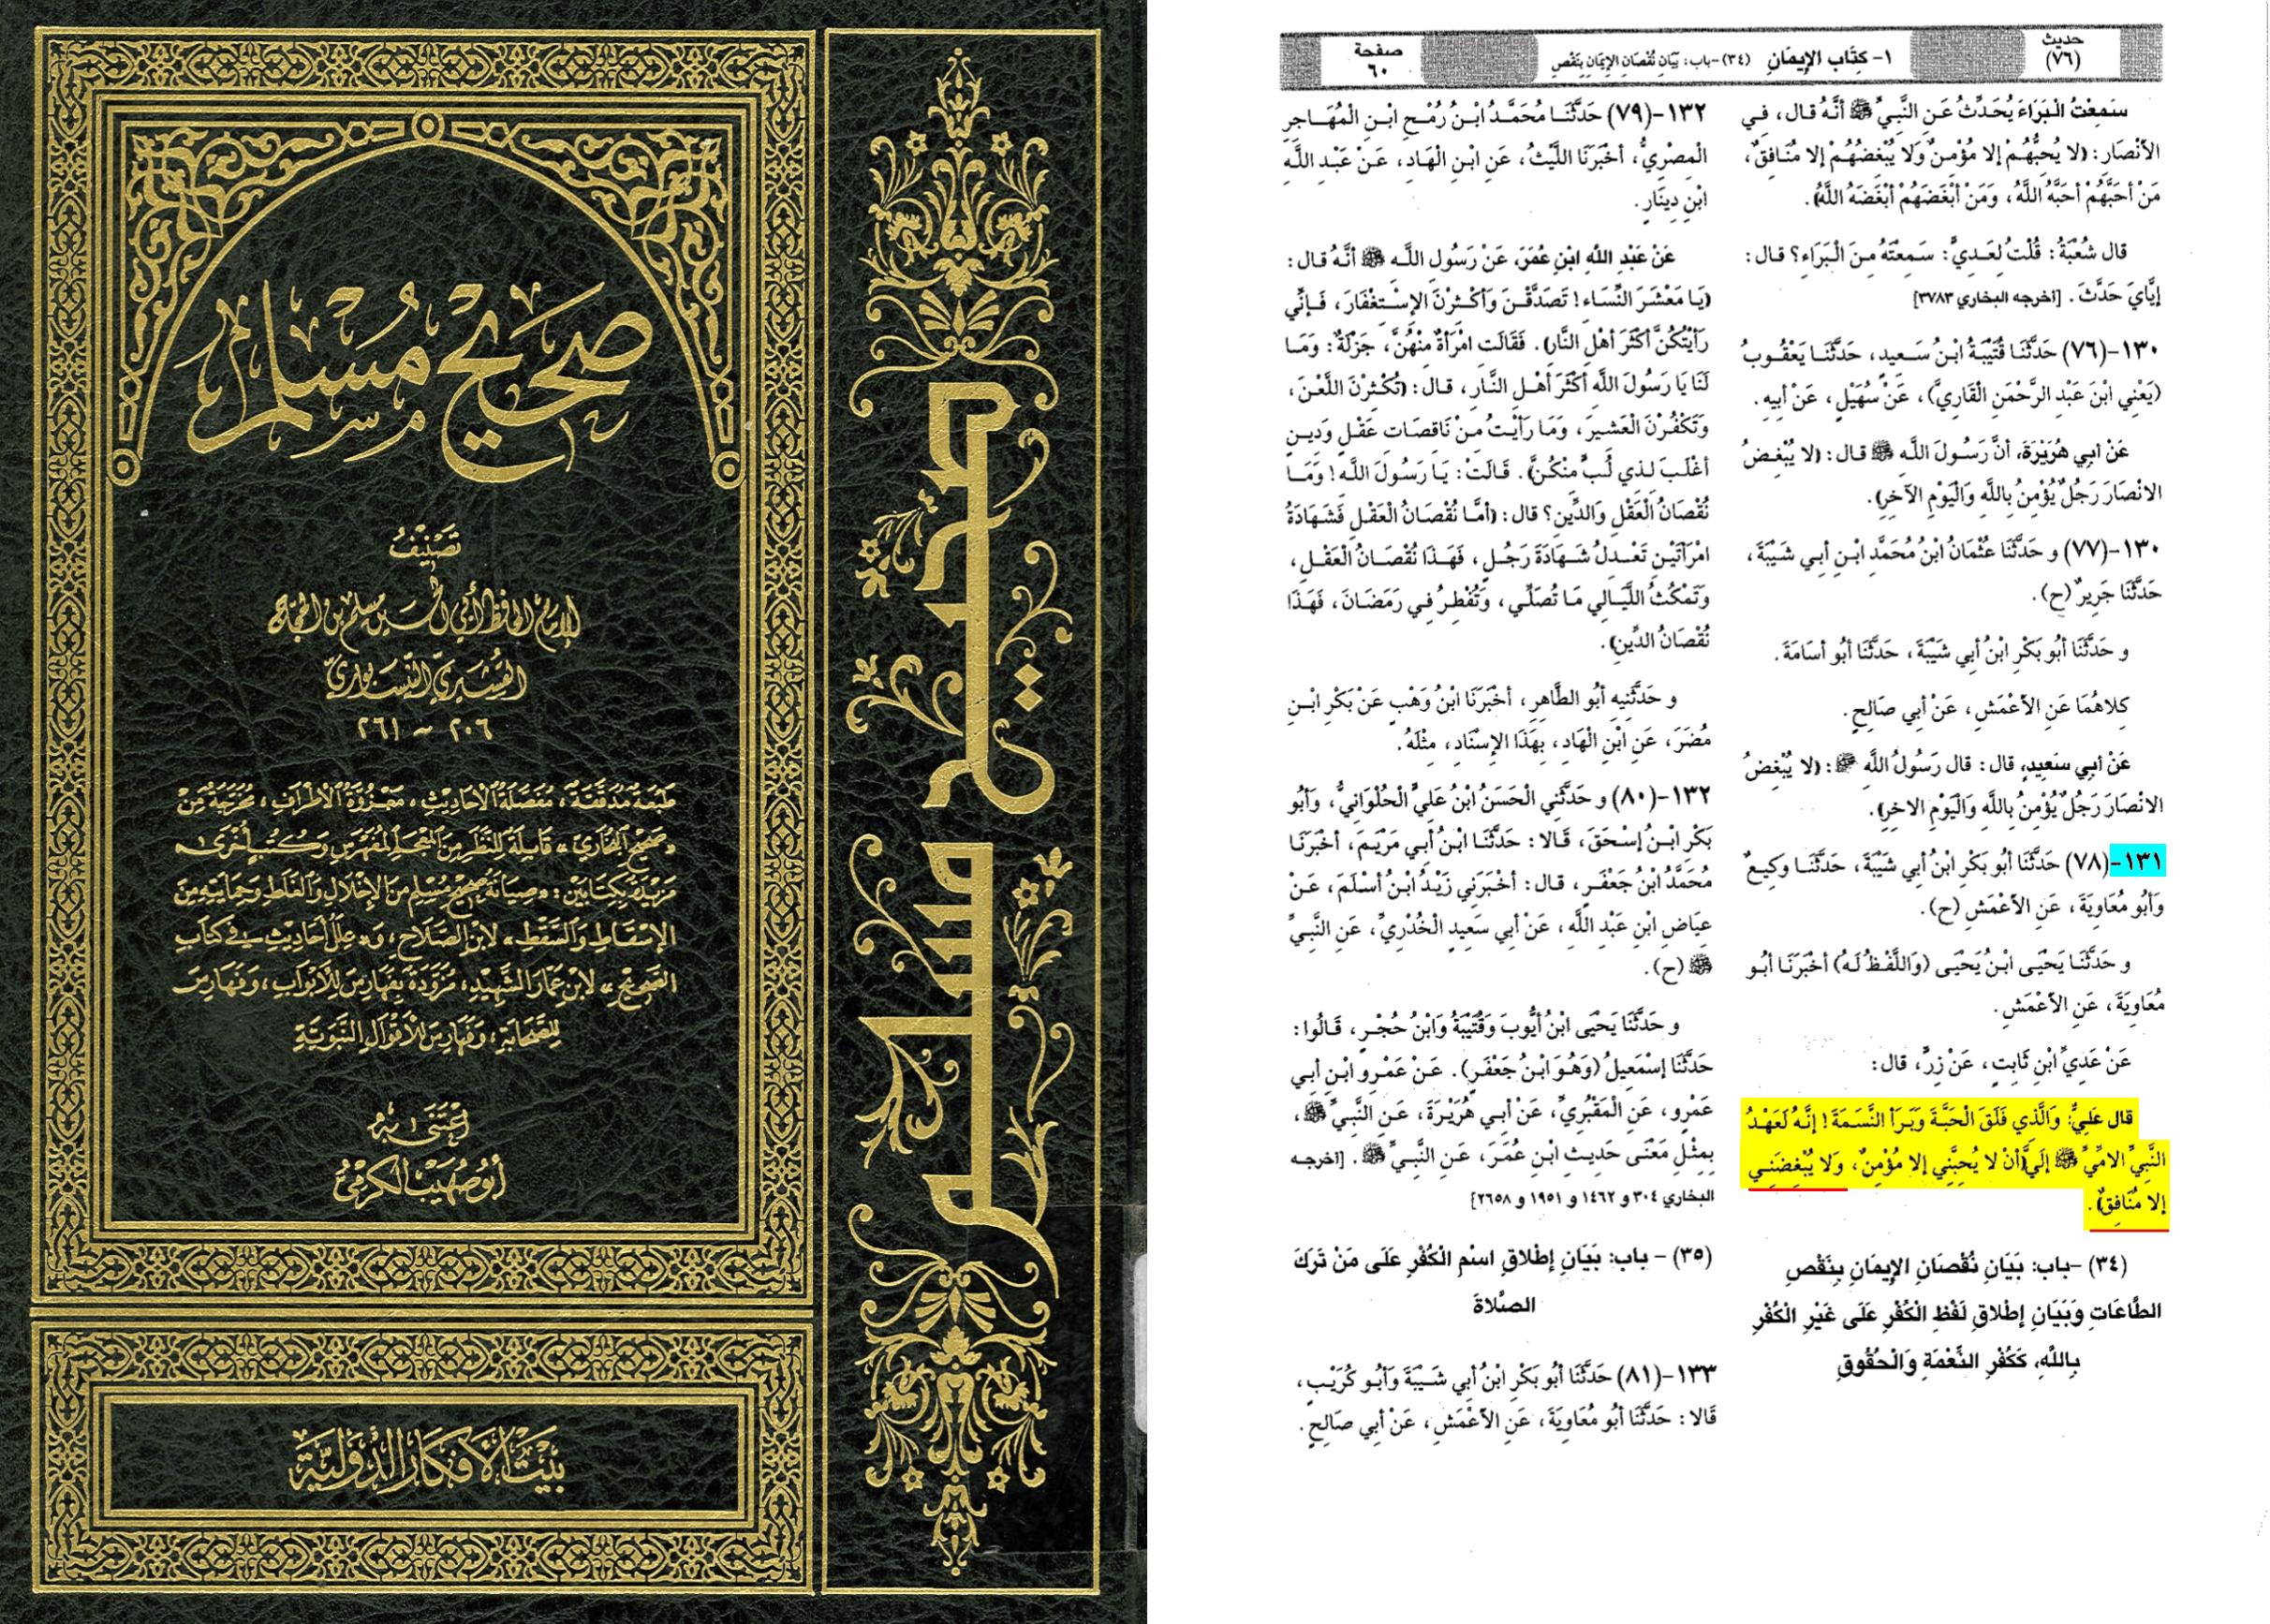 صَحِيحُ مُسْلِم
تَصْنِيفُ
الإمام الحافظ أبي الحسين مسلم بن الحجاج
القشيري النيسابوري
٢٠٦ ~ ٢٦١
طبعة مدققة، مفصلة الأحاديث، معزوة الأطراف، مخرجة من
«صحيح البخاري» قابلة للنظر من المعجم المفهرس وكتب أخرى،
مزيدة بكتابين: «صيانة صحيح مسلم من الإخلال والغلط وحمايته من
الإسقاط والسقط» لابن الصلاح، و«علل أحاديث في كتاب
الصحيح» لابن عمار الشهيد، مزودة بفهارس للأبواب، وفهارس
للصحابة، وفهارس للأقوال النبوية
اعتنى به
أبو صهيب الكرمي
بيت الأفكار الدولية
صحيح مسلم
حديث
(٧٦)
١- كِتَاب الإِيمَانِ (٣٤)-باب: بَيَانِ نُقْصَانِ الإِيمَانِ بِنَقْصِ
صفحة
٦٠
سَمِعْتُ الْبَرَاءَ يُحَدِّثُ عَنِ النَّبِيِّ ﷺ أنَّهُ قال، فِي
الأنْصَارِ: (لا يُحِبُّهُمْ إلا مُؤْمِنٌ وَلا يُبْغِضُهُمْ إلا مُنَافِقٌ،
مَنْ أحَبَّهُمْ أحَبَّهُ اللَّهُ، وَمَنْ أبْغَضَهُمْ أبْغَضَهُ اللَّهُ).
قال شُعْبَةُ: قُلْتُ لِعَدِيٍّ: سَمِعْتَهُ مِنَ الْبَرَاءِ؟ قال:
إيَّايَ حَدَّثَ. [اخرجه البخاري ٣٧٨٣]
١٣٠-(٧٦) حَدَّثَنَا قُتَيْبَةُ ابْنُ سَعِيدٍ، حَدَّثَنَا يَعْقُوبُ
(يَعْنِي ابْنَ عَبْدِ الرَّحْمَنِ الْقَارِيَّ)، عَنْ سُهَيْلٍ، عَنْ أبِيهِ.
عَنْ أبِي هُرَيْرَةَ، أنَّ رَسُولَ اللَّهِ ﷺ قال: (لا يُبْغِضُ
الانْصَارَ رَجُلٌ يُؤْمِنُ بِاللَّهِ وَالْيَوْمِ الآخِرِ).
١٣٠-(٧٧) و حَدَّثَنَا عُثْمَانُ ابْنُ مُحَمَّدِ ابْنِ أبِي شَيْبَةَ،
حَدَّثَنَا جَرِيرٌ (ح).
و حَدَّثَنَا أبُو بَكْرِ ابْنُ أبِي شَيْبَةَ، حَدَّثَنَا أبُو أسَامَةَ.
كِلاهُمَا عَنِ الأعْمَشِ، عَنْ أبِي صَالِحٍ.
عَنْ أبِي سَعِيدٍ، قال: قال رَسُولُ اللَّهِ ﷺ: (لا يُبْغِضُ
الانْصَارَ رَجُلٌ يُؤْمِنُ بِاللَّهِ وَالْيَوْمِ الاخِرِ).
١٣١-(٧٨) حَدَّثَنَا أبُو بَكْرِ ابْنُ أبِي شَيْبَةَ، حَدَّثَنَا وَكِيعٌ
وَأبُو مُعَاوِيَةَ، عَنِ الأعْمَشِ (ح).
و حَدَّثَنَا يَحْيَى ابْنُ يَحْيَى (وَاللَّفْظُ لَهُ) أخْبَرَنَا أبُو
مُعَاوِيَةَ، عَنِ الأعْمَشِ.
عَنْ عَدِيِّ ابْنِ ثَابِتٍ، عَنْ زِرٍّ، قال:
قال عَلِيٌّ: وَالَّذِي فَلَقَ الْحَبَّةَ وَبَرَأ النَّسَمَةَ! إنَّهُ لَعَهْدُ
النَّبِيِّ الامِّيِّ ﷺ إلَيَّ (أنْ لا يُحِبَّنِي إلا مُؤْمِنٌ، وَلا يُبْغِضَنِي
إلا مُنَافِقٌ).
(٣٤) -باب: بَيَانِ نُقْصَانِ الإِيمَانِ بِنَقْصِ
الطَّاعَاتِ وَبَيَانِ إِطْلاقِ لَفْظِ الْكُفْرِ عَلَى غَيْرِ الْكُفْرِ
بِاللَّهِ، كَكُفْرِ النِّعْمَةِ وَالْحُقُوقِ
١٣٢-(٧٩) حَدَّثَنَا مُحَمَّدُ ابْنُ رُمْحِ ابْنِ الْمُهَاجِرِ
الْمِصْرِيُّ، أخْبَرَنَا اللَّيْثُ، عَنِ ابْنِ الْهَادِ، عَنْ عَبْدِ اللَّهِ
ابْنِ دِينَارٍ.
عَنْ عَبْدِ اللَّهِ ابْنِ عُمَرَ، عَنْ رَسُولِ اللَّهِ ﷺ أنَّهُ قال:
(يَا مَعْشَرَ النِّسَاءِ! تَصَدَّقْنَ وَأكْثِرْنَ الإسْتِغْفَارَ، فَإنِّي
رَأيْتُكُنَّ أكْثَرَ أهْلِ النَّارِ). فَقَالَتِ امْرَأةٌ مِنْهُنَّ، جَزْلَةٌ: وَمَا
لَنَا يَا رَسُولَ اللَّهِ أكْثَرَ أهْلِ النَّارِ، قال: (تُكْثِرْنَ اللَّعْنَ،
وَتَكْفُرْنَ الْعَشِيرَ، وَمَا رَأيْتُ مِنْ نَاقِصَاتِ عَقْلٍ وَدِينٍ
أغْلَبَ لِذِي لُبٍّ مِنْكُنَّ). قَالَتْ: يَا رَسُولَ اللَّهِ! وَمَا
نُقْصَانُ الْعَقْلِ وَالدِّينِ؟ قال: (أمَّا نُقْصَانُ الْعَقْلِ فَشَهَادَةُ
امْرَأتَيْنِ تَعْدِلُ شَهَادَةَ رَجُلٍ، فَهَذَا نُقْصَانُ الْعَقْلِ،
وَتَمْكُثُ اللَّيَالِي مَا تُصَلِّي، وَتُفْطِرُ فِي رَمَضَانَ، فَهَذَا
نُقْصَانُ الدِّينِ).
و حَدَّثَنِيهِ أبُو الطَّاهِرِ، أخْبَرَنَا ابْنُ وَهْبٍ عَنْ بَكْرِ ابْنِ
مُضَرَ، عَنِ ابْنِ الْهَادِ، بِهَذَا الإسْنَادِ، مِثْلَهُ.
١٣٢-(٨٠) و حَدَّثَنِي الْحَسَنُ ابْنُ عَلِيٍّ الْحُلْوَانِيُّ، وَأبُو
بَكْرِ ابْنُ إسْحَقَ، قَالا: حَدَّثَنَا ابْنُ أبِي مَرْيَمَ، أخْبَرَنَا
مُحَمَّدُ ابْنُ جَعْفَرٍ، قال: أخْبَرَنِي زَيْدُ ابْنُ أسْلَمَ، عَنْ
عِيَاضِ ابْنِ عَبْدِ اللَّهِ، عَنْ أبِي سَعِيدٍ الْخُدْرِيِّ، عَنِ النَّبِيِّ
ﷺ (ح).
و حَدَّثَنَا يَحْيَى ابْنُ أيُّوبَ وَقُتَيْبَةُ وَابْنُ حُجْرٍ، قَالُوا:
حَدَّثَنَا إسْمَعِيلُ (وَهُوَ ابْنُ جَعْفَرٍ). عَنْ عَمْرِو ابْنِ أبِي
عَمْرٍو، عَنِ الْمَقْبُرِيِّ، عَنْ أبِي هُرَيْرَةَ، عَنِ النَّبِيِّ ﷺ،
بِمِثْلِ مَعْنَى حَدِيثِ ابْنِ عُمَرَ، عَنِ النَّبِيِّ ﷺ. [اخرجه
البخاري ٣٠٤ و ١٤٦٢ و ١٩٥١ و ٢٦٥٨]
(٣٥) - باب: بَيَانِ إِطْلاقِ اسْمِ الْكُفْرِ عَلَى مَنْ تَرَكَ
الصَّلاةَ
١٣٣-(٨١) حَدَّثَنَا أبُو بَكْرِ ابْنُ أبِي شَيْبَةَ وَأبُو كُرَيْبٍ،
قَالا: حَدَّثَنَا أبُو مُعَاوِيَةَ، عَنِ الأعْمَشِ، عَنْ أبِي صَالِحٍ.